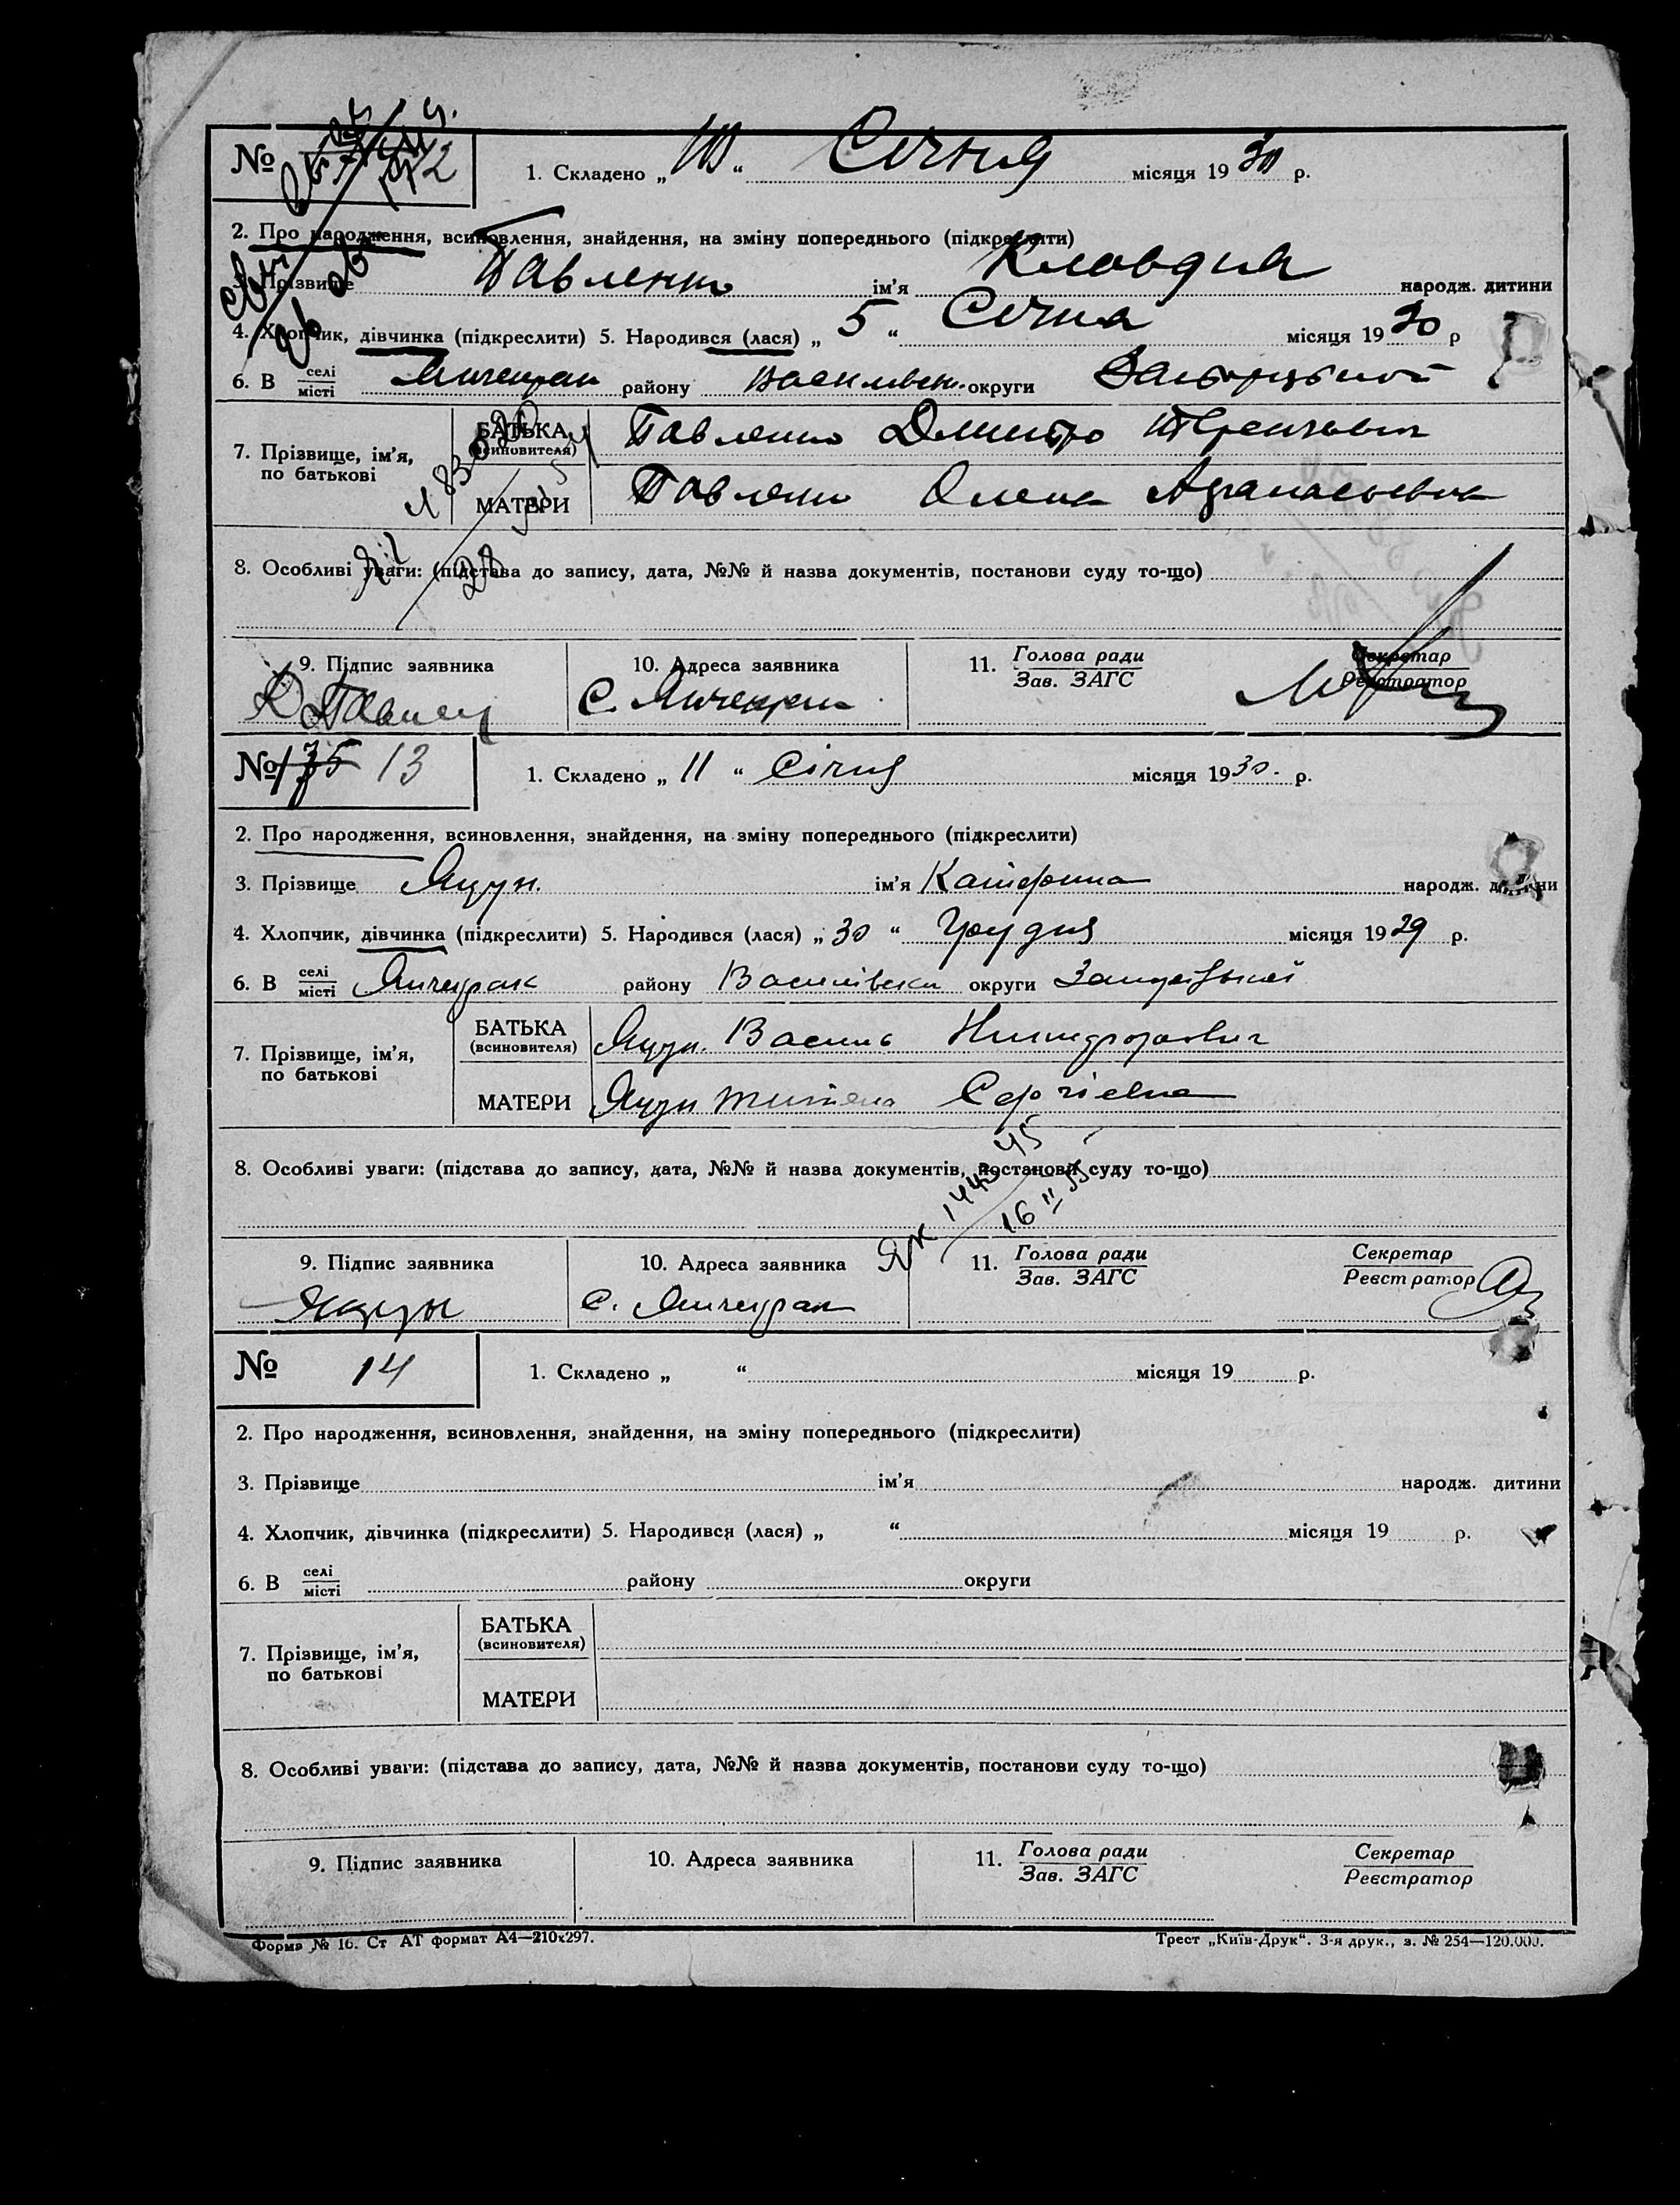 № 12 1. Складено „ “ Сечня місяця 19 30 р.
2. Про народження, всиновлення, знайдення, на зміну попереднього (підкреслити)
3. Прізвище Павленко ім'я Клавдия народж. дитини
4. Хлопчик, дівчинка (підкреслити) 5. Народився (лася) „ 5 “ Сечня місяця 19 30 р
6. В селі місті району округи
7. Прізвище, ім'я, по батькові
БАТЬКА (всиновителя) Павленко Дмитро
МАТЕРИ Павленко Олена
8. Особливі уваги: (підстава до запису, дата, №№ й назва документів, постанови суду то-що)
9. Підпис заявника 10. Адреса заявника 11. Голова ради Зав. ЗАГС Секретар Реєстратор
с. Янчекрак
№ 175 13 1. Складено „ 11 “ Січня місяця 19 30. р.
2. Про народження, всиновлення, знайдення, на зміну попереднього (підкреслити)
3. Прізвище Яцун. ім'я Катерина народж. дитини
4. Хлопчик, дівчинка (підкреслити) 5. Народився (лася) „ 30 “ Грудня місяця 19 29 р.
6. В селі місті Янчекрак району округи Запорізької
7. Прізвище, ім'я, по батькові
БАТЬКА (всиновителя) Яцун. Василь
МАТЕРИ Яцун Сергіевна
8. Особливі уваги: (підстава до запису, дата, №№ й назва документів, постанови суду то-що)
16 II 55
9. Підпис заявника 10. Адреса заявника 11. Голова ради Зав. ЗАГС Секретар Реєстратор
с. Янчекрак
№ 14 1. Складено „ “ місяця 19 р.
2. Про народження, всиновлення, знайдення, на зміну попереднього (підкреслити)
3. Прізвище ім'я народж. дитини
4. Хлопчик, дівчинка (підкреслити) 5. Народився (лася) „ “ місяця 19 р.
6. В селі місті району округи
7. Прізвище, ім'я, по батькові
БАТЬКА (всиновителя)
МАТЕРИ
8. Особливі уваги: (підстава до запису, дата, №№ й назва документів, постанови суду то-що)
9. Підпис заявника 10. Адреса заявника 11. Голова ради Зав. ЗАГС Секретар Реєстратор
Форма № 16. Ст АТ формат А4—210х297. Трест „Київ-Друк“. 3-я друк., з. № 254—120.000.